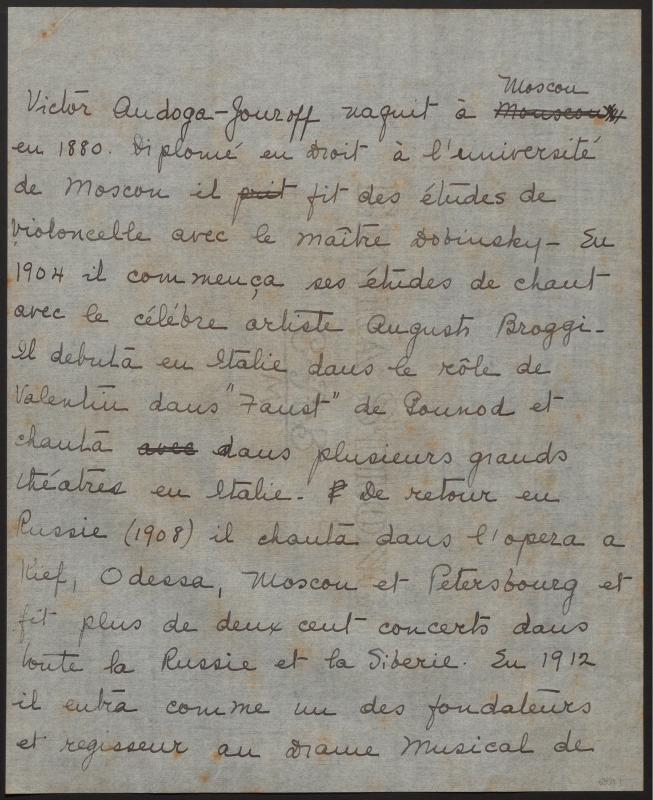 Moscou
Victor Andoga-Jouroff naquit à Mouscou
en 1880. Diplomé en Droit à l'université
de Moscou il prit fit des études de
violoncelle avec le maître Dobinsky - En
1904 il commença ses études de chant
avec le célébre artiste Augusto Broggi -
Il debuta en Italie dans le rôle de
Valentin dans "Faust" de Gounod et
chanta avec dans plusieurs grands
théatres en Italie - De retour en
Russie (1908) il chanta dans l'opera a
Kief, Odessa, Moscou et Petersbourg et
fit plus de deux cent concerts dans
toute la Russie et la Siberie. En 1912
il entra comme un des fondateurs
et regisseur au Drame Musical de